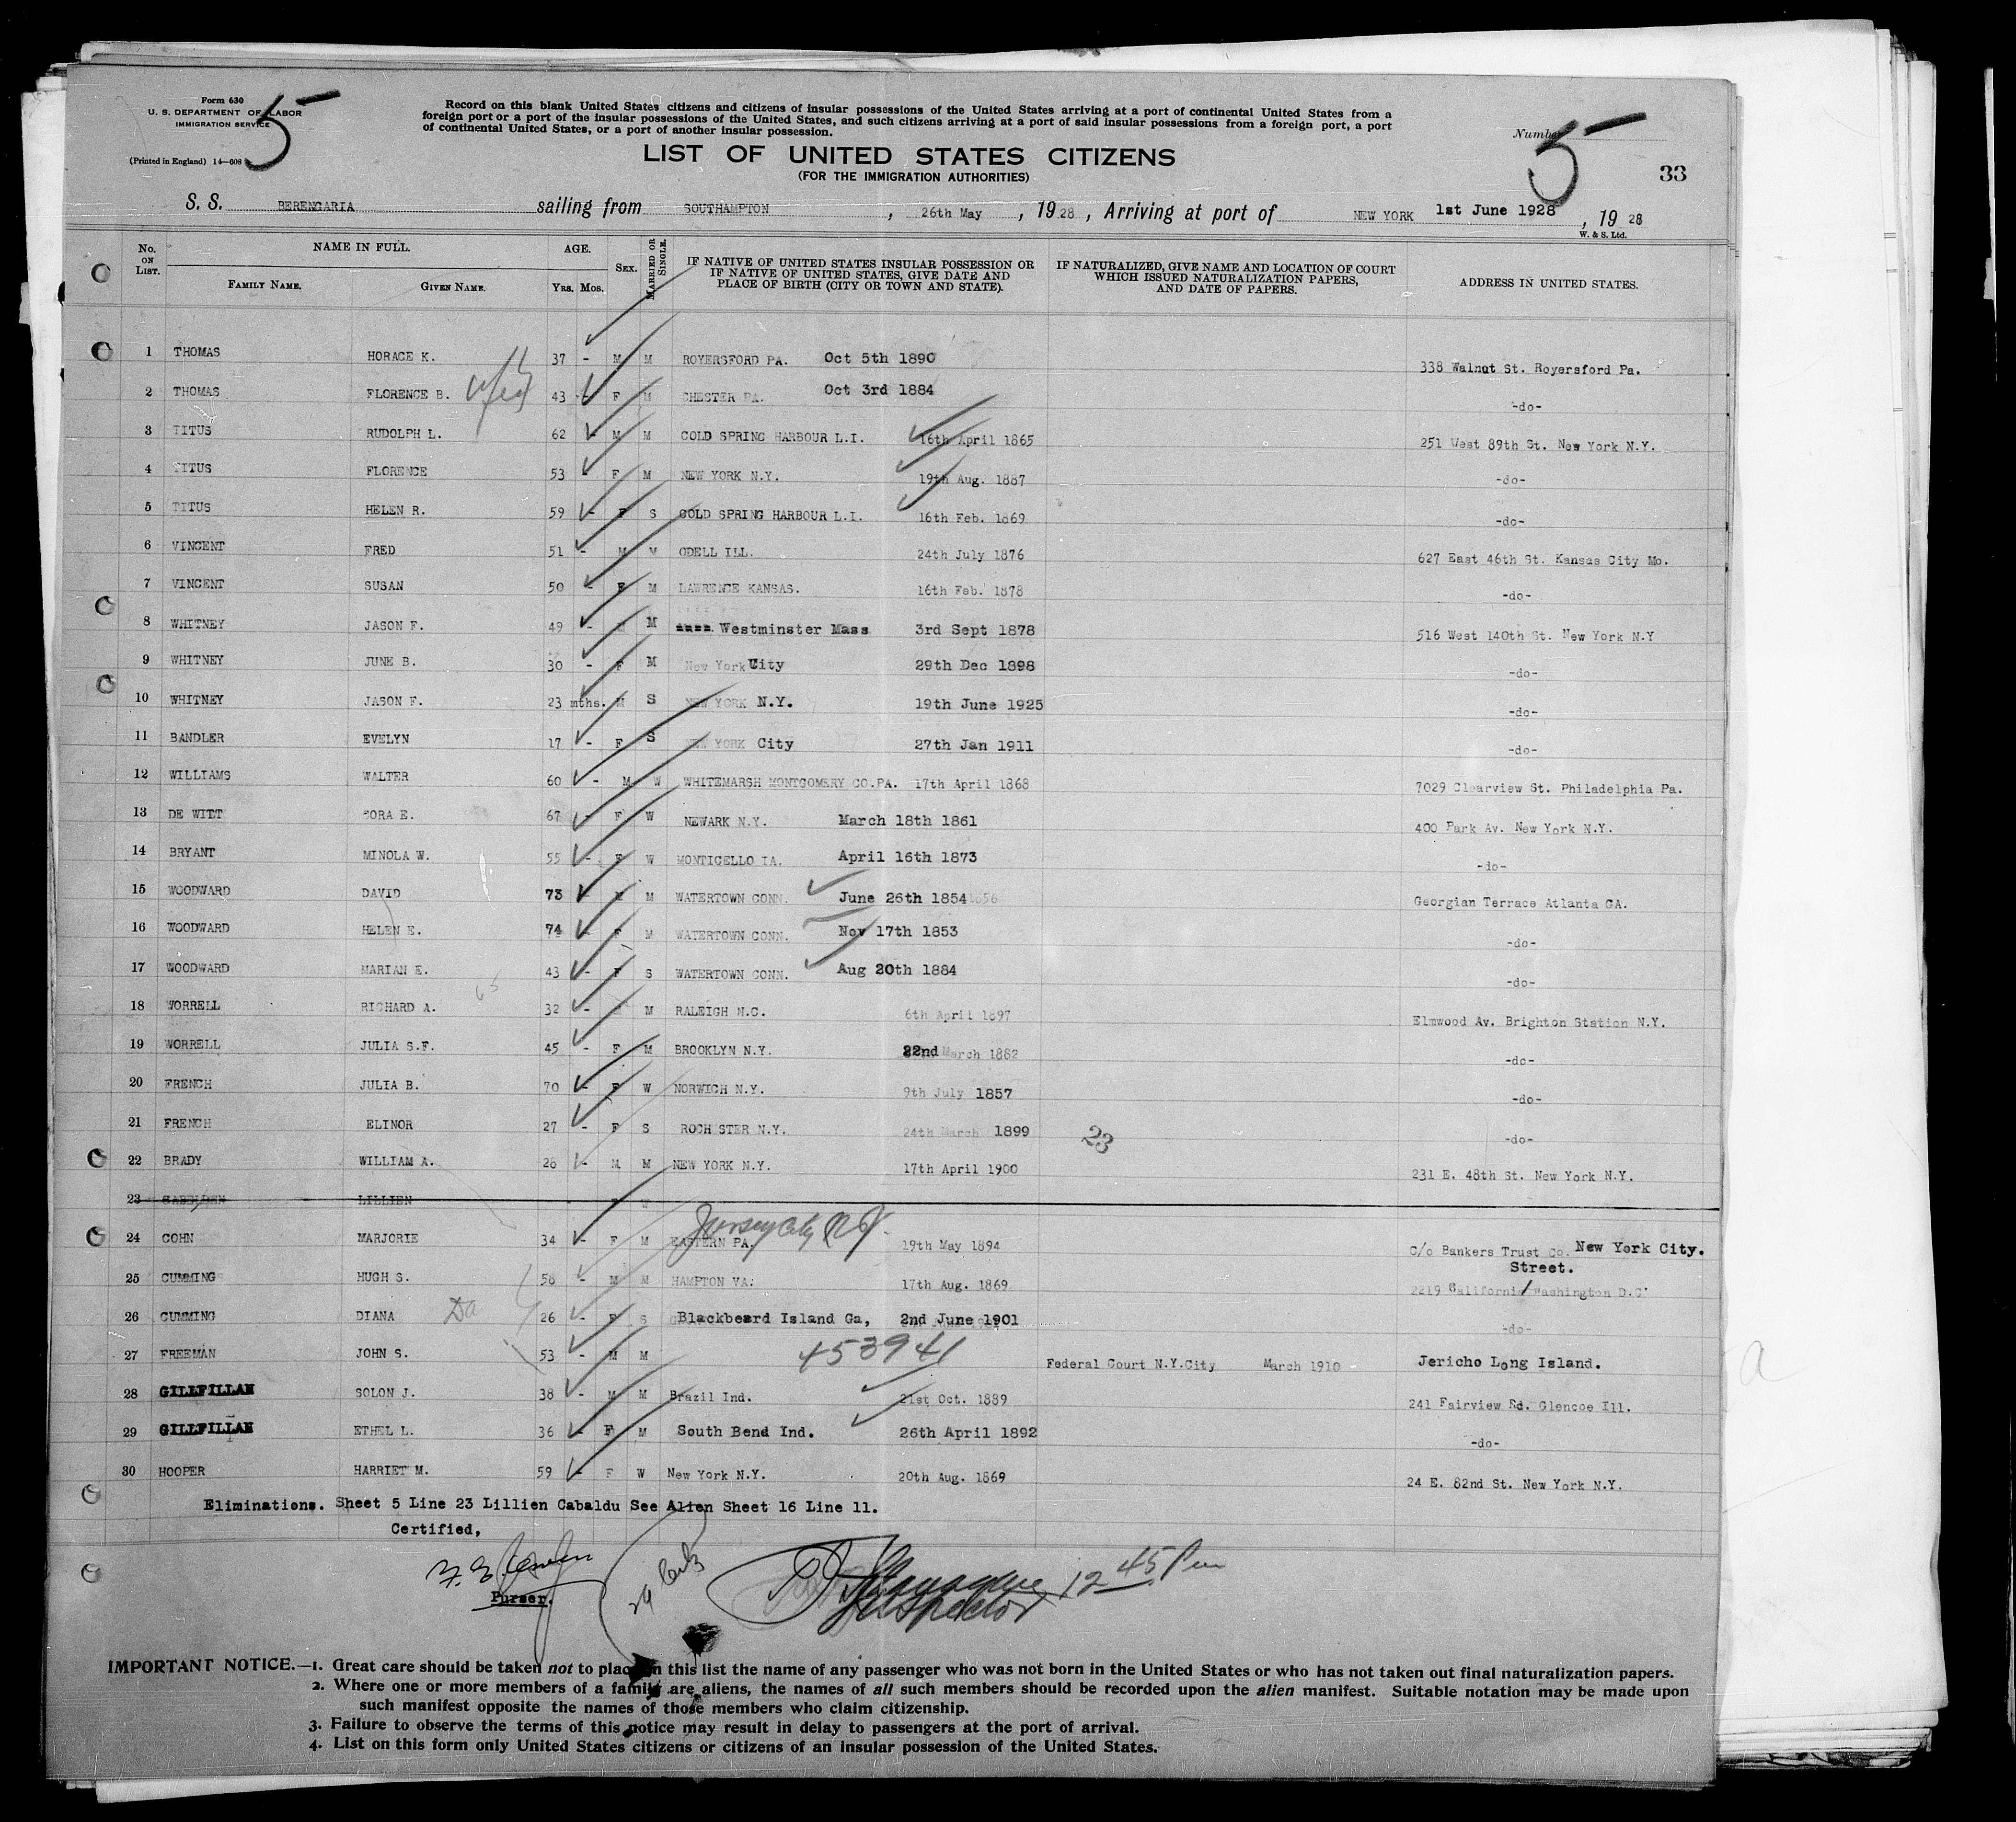 Form 630
U. S. DEPARTMENT OF LABOR
IMMIGRATION SERVICE
(Printed in England) 14—608
5
Record on this blank United States citizens and citizens of insular possessions of the United States arriving at a port of continental United States from a
foreign port or a port of the insular possessions of the United States, and such citizens arriving at a port of said insular possessions from a foreign port, a port
of continental United States, or a port of another insular possession.
Number
5
33
LIST OF UNITED STATES CITIZENS
(FOR THE IMMIGRATION AUTHORITIES)
S. S. BERENGARIA sailing from SOUTHAMPTON, 26th May, 1928, Arriving at port of NEW YORK 1st June 1928, 1928
W. & S. Ltd.
No. ON LIST. NAME IN FULL. FAMILY NAME. GIVEN NAME. AGE. YRS. MOS. SEX. MARRIED OR SINGLE. IF NATIVE OF UNITED STATES INSULAR POSSESSION OR IF NATIVE OF UNITED STATES, GIVE DATE AND PLACE OF BIRTH (CITY OR TOWN AND STATE). IF NATURALIZED, GIVE NAME AND LOCATION OF COURT WHICH ISSUED NATURALIZATION PAPERS, AND DATE OF PAPERS. ADDRESS IN UNITED STATES.
1 THOMAS HORACE K. 37 - M M ROYERSFORD PA. Oct 5th 1890 338 Walnut St. Royersford Pa.
2 THOMAS FLORENCE B. 43 - F M CHESTER PA. Oct 3rd 1884 -do-
3 TITUS RUDOLPH L. 62 - M M COLD SPRING HARBOUR L.I. 16th April 1865 251 West 89th St. New York N.Y.
4 TITUS FLORENCE 53 - F M NEW YORK N.Y. 19th Aug. 1887 -do-
5 TITUS HELEN R. 59 - F S COLD SPRING HARBOUR L.I. 16th Feb. 1869 -do-
6 VINCENT FRED 51 - M M ODELL ILL. 24th July 1876 627 East 46th St. Kansas City Mo.
7 VINCENT SUSAN 50 - F M LAWRENCE KANSAS. 16th Feb. 1878 -do-
8 WHITNEY JASON F. 49 - M M Westminster Mass 3rd Sept 1878 516 West 140th St. New York N.Y
9 WHITNEY JUNE B. 30 - F M New York City 29th Dec 1898 -do-
10 WHITNEY JASON F. 23 mths. M S NEW YORK N.Y. 19th June 1925 -do-
11 BANDLER EVELYN 17 - F S NEW YORK City 27th Jan 1911 -do-
12 WILLIAMS WALTER 60 - M W WHITEMARSH MONTGOMERY CO.PA. 17th April 1868 7029 Clearview St. Philadelphia Pa.
13 DE WITT CORA E. 67 - F W NEWARK N.Y. March 18th 1861 400 Park Av. New York N.Y.
14 BRYANT MINOLA W. 55 - F W MONTICELLO IA. April 16th 1873 -do-
15 WOODWARD DAVID 73 - M M WATERTOWN CONN. June 26th 1854 Georgian Terrace Atlanta GA.
16 WOODWARD HELEN E. 74 - F M WATERTOWN CONN. Nov 17th 1853 -do-
17 WOODWARD MARIAN E. 43 - F S WATERTOWN CONN. Aug 20th 1884 -do-
18 WORRELL RICHARD A. 32 - M RALEIGH N.C. 6th April 1897 Elmwood Av. Brighton Station N.Y.
19 WORRELL JULIA S.F. 45 - F M BROOKLYN N.Y. 22nd March 1882 -do-
20 FRENCH JULIA B. 70 - F W NORWICH N.Y. 9th July 1857 -do-
21 FRENCH ELINOR 27 - F S ROCH STER N.Y. 24th March 1899 23 -do-
22 BRADY WILLIAM A. 28 - M M NEW YORK N.Y. 17th April 1900 231 E. 48th St. New York N.Y.
23 LILLIEN W
Jersey City N.J.
24 COHN MARJORIE 34 - F M EASTERN PA. 19th May 1894 C/o Bankers Trust Co. New York City.
25 CUMMING HUGH S. 58 - M M HAMPTON VA. 17th Aug. 1869 2219 California Street. Washington D.C.
26 CUMMING DIANA 26 - F S Blackbeard Island Ga, 2nd June 1901 -do-
27 FREEMAN JOHN S. 53 - M M 453941 Federal Court N.Y.City March 1910 Jericho Long Island.
28 GILLFILLAN SOLON J. 38 - M M Brazil Ind. 21st Oct. 1889 241 Fairview Rd. Glencoe Ill.
29 GILLFILLAN ETHEL L. 36 - F M South Bend Ind. 26th April 1892 -do-
30 HOOPER HARRIET M. 59 - F W New York N.Y. 20th Aug. 1869 24 E. 82nd St. New York N.Y.
Eliminations. Sheet 5 Line 23 Lillien Cabaldu See Alien Sheet 16 Line 11.
Certified,
Purser.
Inspector 12 45 Pm
IMPORTANT NOTICE.—1. Great care should be taken not to place on this list the name of any passenger who was not born in the United States or who has not taken out final naturalization papers.
2. Where one or more members of a family are aliens, the names of all such members should be recorded upon the alien manifest. Suitable notation may be made upon
such manifest opposite the names of those members who claim citizenship.
3. Failure to observe the terms of this notice may result in delay to passengers at the port of arrival.
4. List on this form only United States citizens or citizens of an insular possession of the United States.